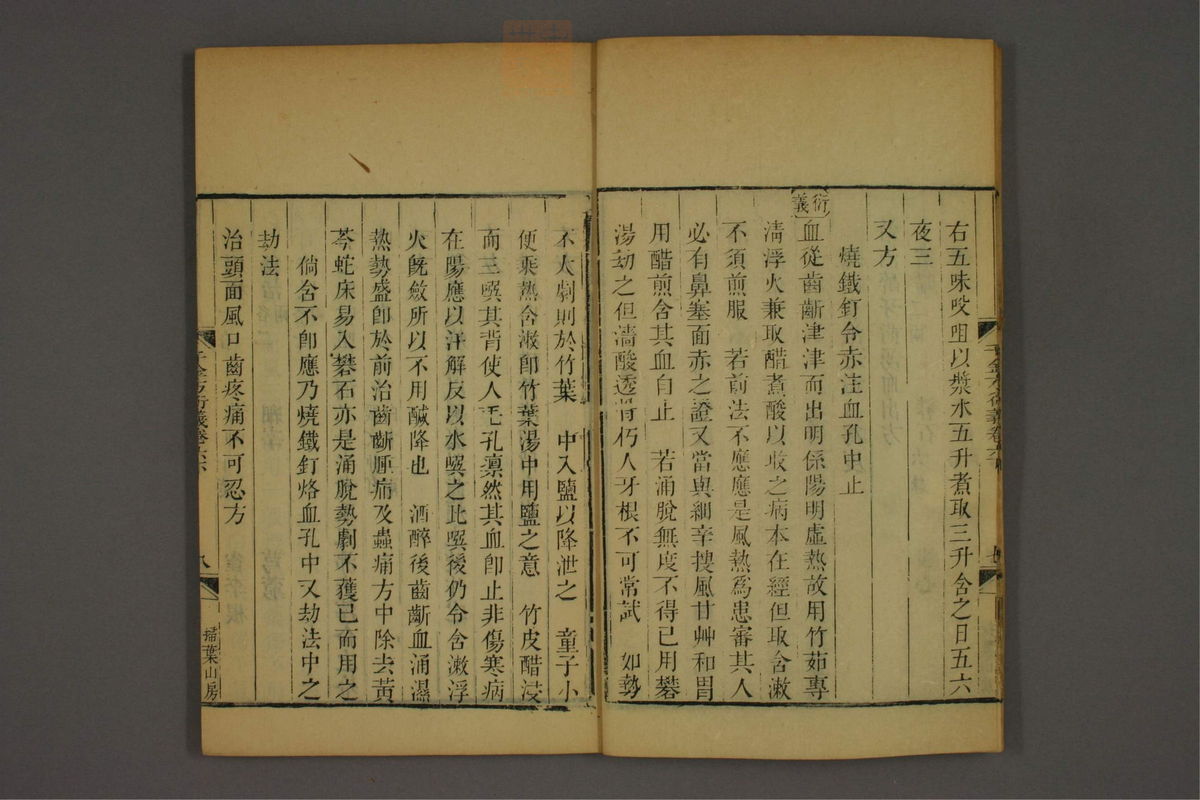 右五味㕮咀以漿水五升煮取三升含之日五六
夜三
又方
燒鐵釘令赤注血孔中止
衍義
血從齒齗津津而出明係陽明虛熱故用竹茹專
淸浮火兼取醋煮酸以收之病本在經但取含漱
不須煎服　若前法不應應是風熱爲患審其人
必有鼻塞面赤之證又當與細辛搜風甘艸和胃
用醋煎含其血自止　若涌脫無度不得已用礬
湯劫之但濇酸透骨朽人牙根不可常試　如勢
不大劇則於竹葉　中入鹽以降泄之　童子小
便乘熱含漱卽竹葉湯中用鹽之意　竹皮醋浸
而三噀其背使人毛孔凛然其血卽止非傷寒病
在陽應以汗解反以水噀之比噀後仍令含漱浮
火旣斂所以不用鹹降也　酒醉後齒齗血涌濕
熱勢盛卽於前治齒齗腫痛及蟲痛方中除去黃
芩蛇床易入礬石亦是涌脫勢劇不獲已而用之
倘含不卽應乃燒鐵釘烙血孔中又劫法中之
劫法
治頭面風口齒疼痛不可忍方
千金方衍義卷六
八
掃葉山房